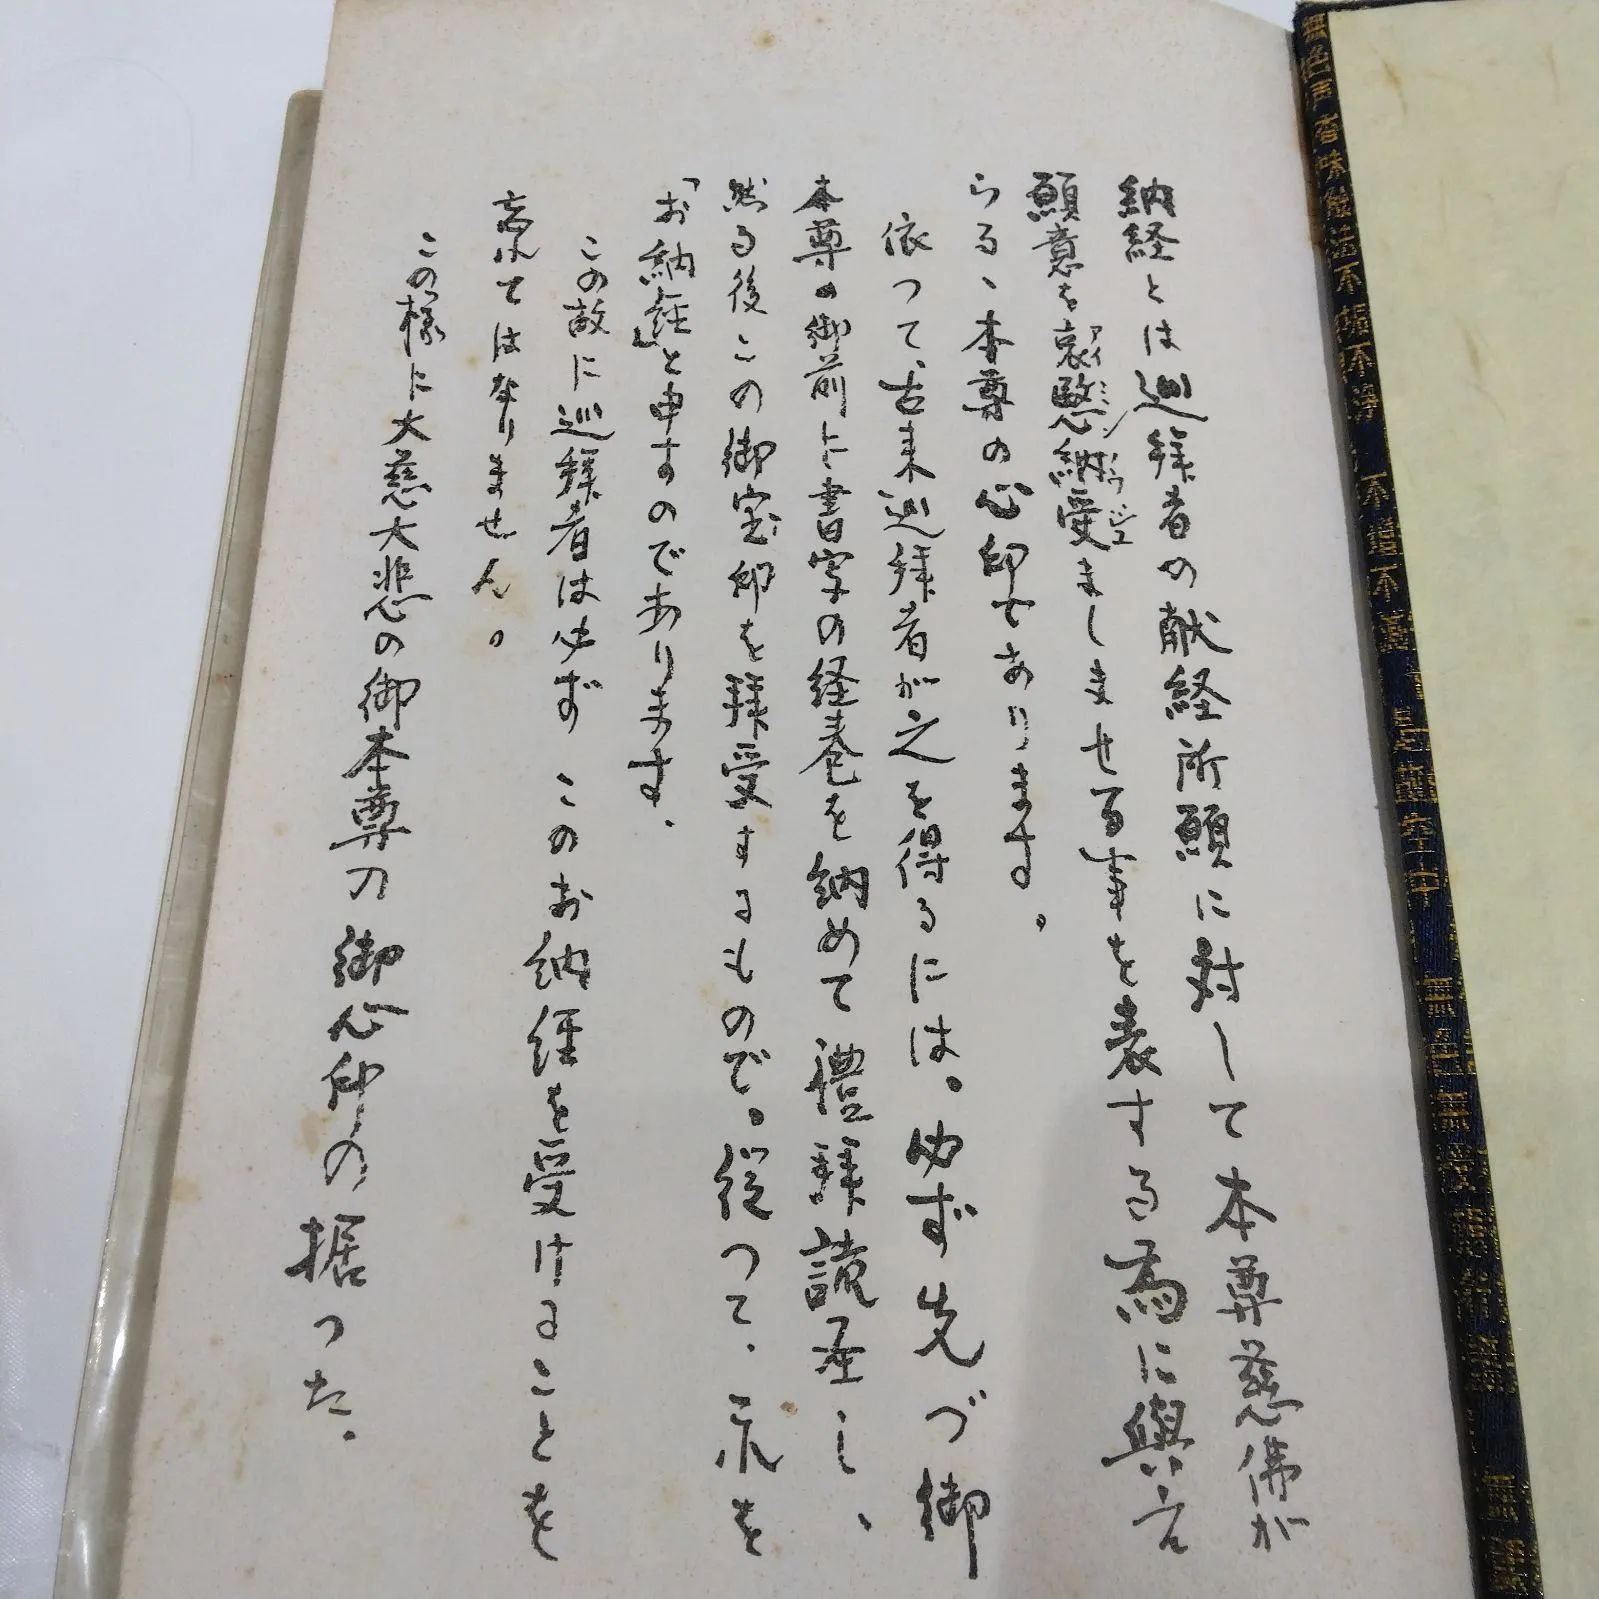 納経とは巡拝者の献経所願に対して本尊慈佛が
願意を哀愍納受ましませる事を表する為に與え
アイミンノウジュ
らる、本尊の心印であります。
依つて、古来巡拝者が之を得るには。必ず先づ御
本尊の御前に書字の経巻を納めて禮拝読圣し、
然る後この御宝印を拝受するもので。従つて、示を
「お納経」と申すのであります。
この故に巡拝者は必ず このお納経を受けることを
忘れてはなりません。
この様に大慈大悲の御本尊の御心印の据った。
無色声香味触法不垢不浄 不増不
是 空中 無色無受想行識 無